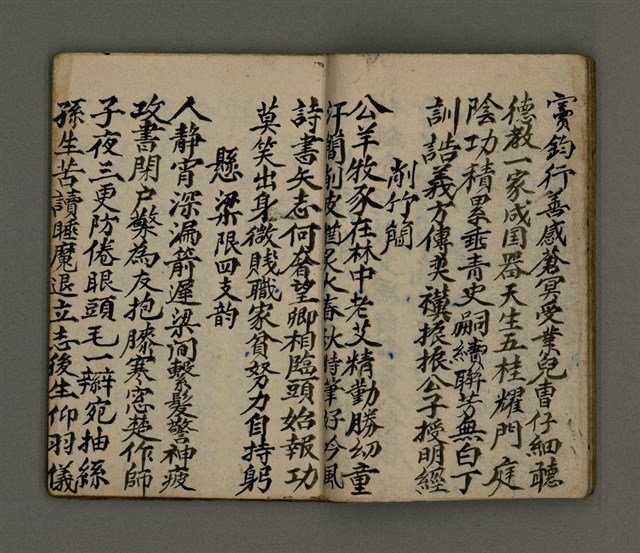 竇鈞行善感蒼冥受業兒曹仔細聽
德教一家成国器天生五桂耀門庭
陰功積累垂青史嗣續聯芳無白丁
訓誥義方傳奕禩振振公子授明經
削竹簡
公羊牧豕在林中老艾精勤勝幼童
汗簡削皮酋炙火春秋特筆仔吟風
詩書矢志何奢望卿相臨頭始報功
莫笑出身微賤職家貧努力自持躬
懸梁限四支韵
人静宵深漏箭遲梁间繫髮警神疲
攻書閉户檠為友抱膝寒窓楚作師
子夜三更防倦眼頭毛一辮宛抽絲
孫生苦讀睡魔退立志後生仰羽儀